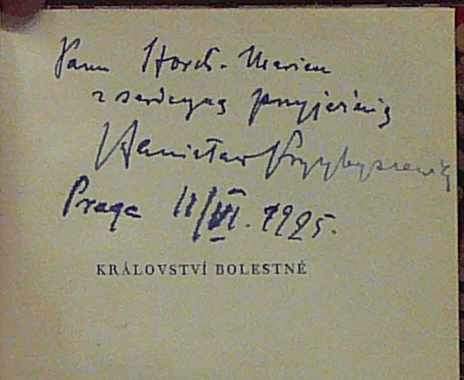 Panu Horch-Marien
z serdeczną przyjaźnią
Stanisław Przybyszewski
Praga 11/VI. 1925.
KRÁLOVSTVÍ BOLESTNÉ